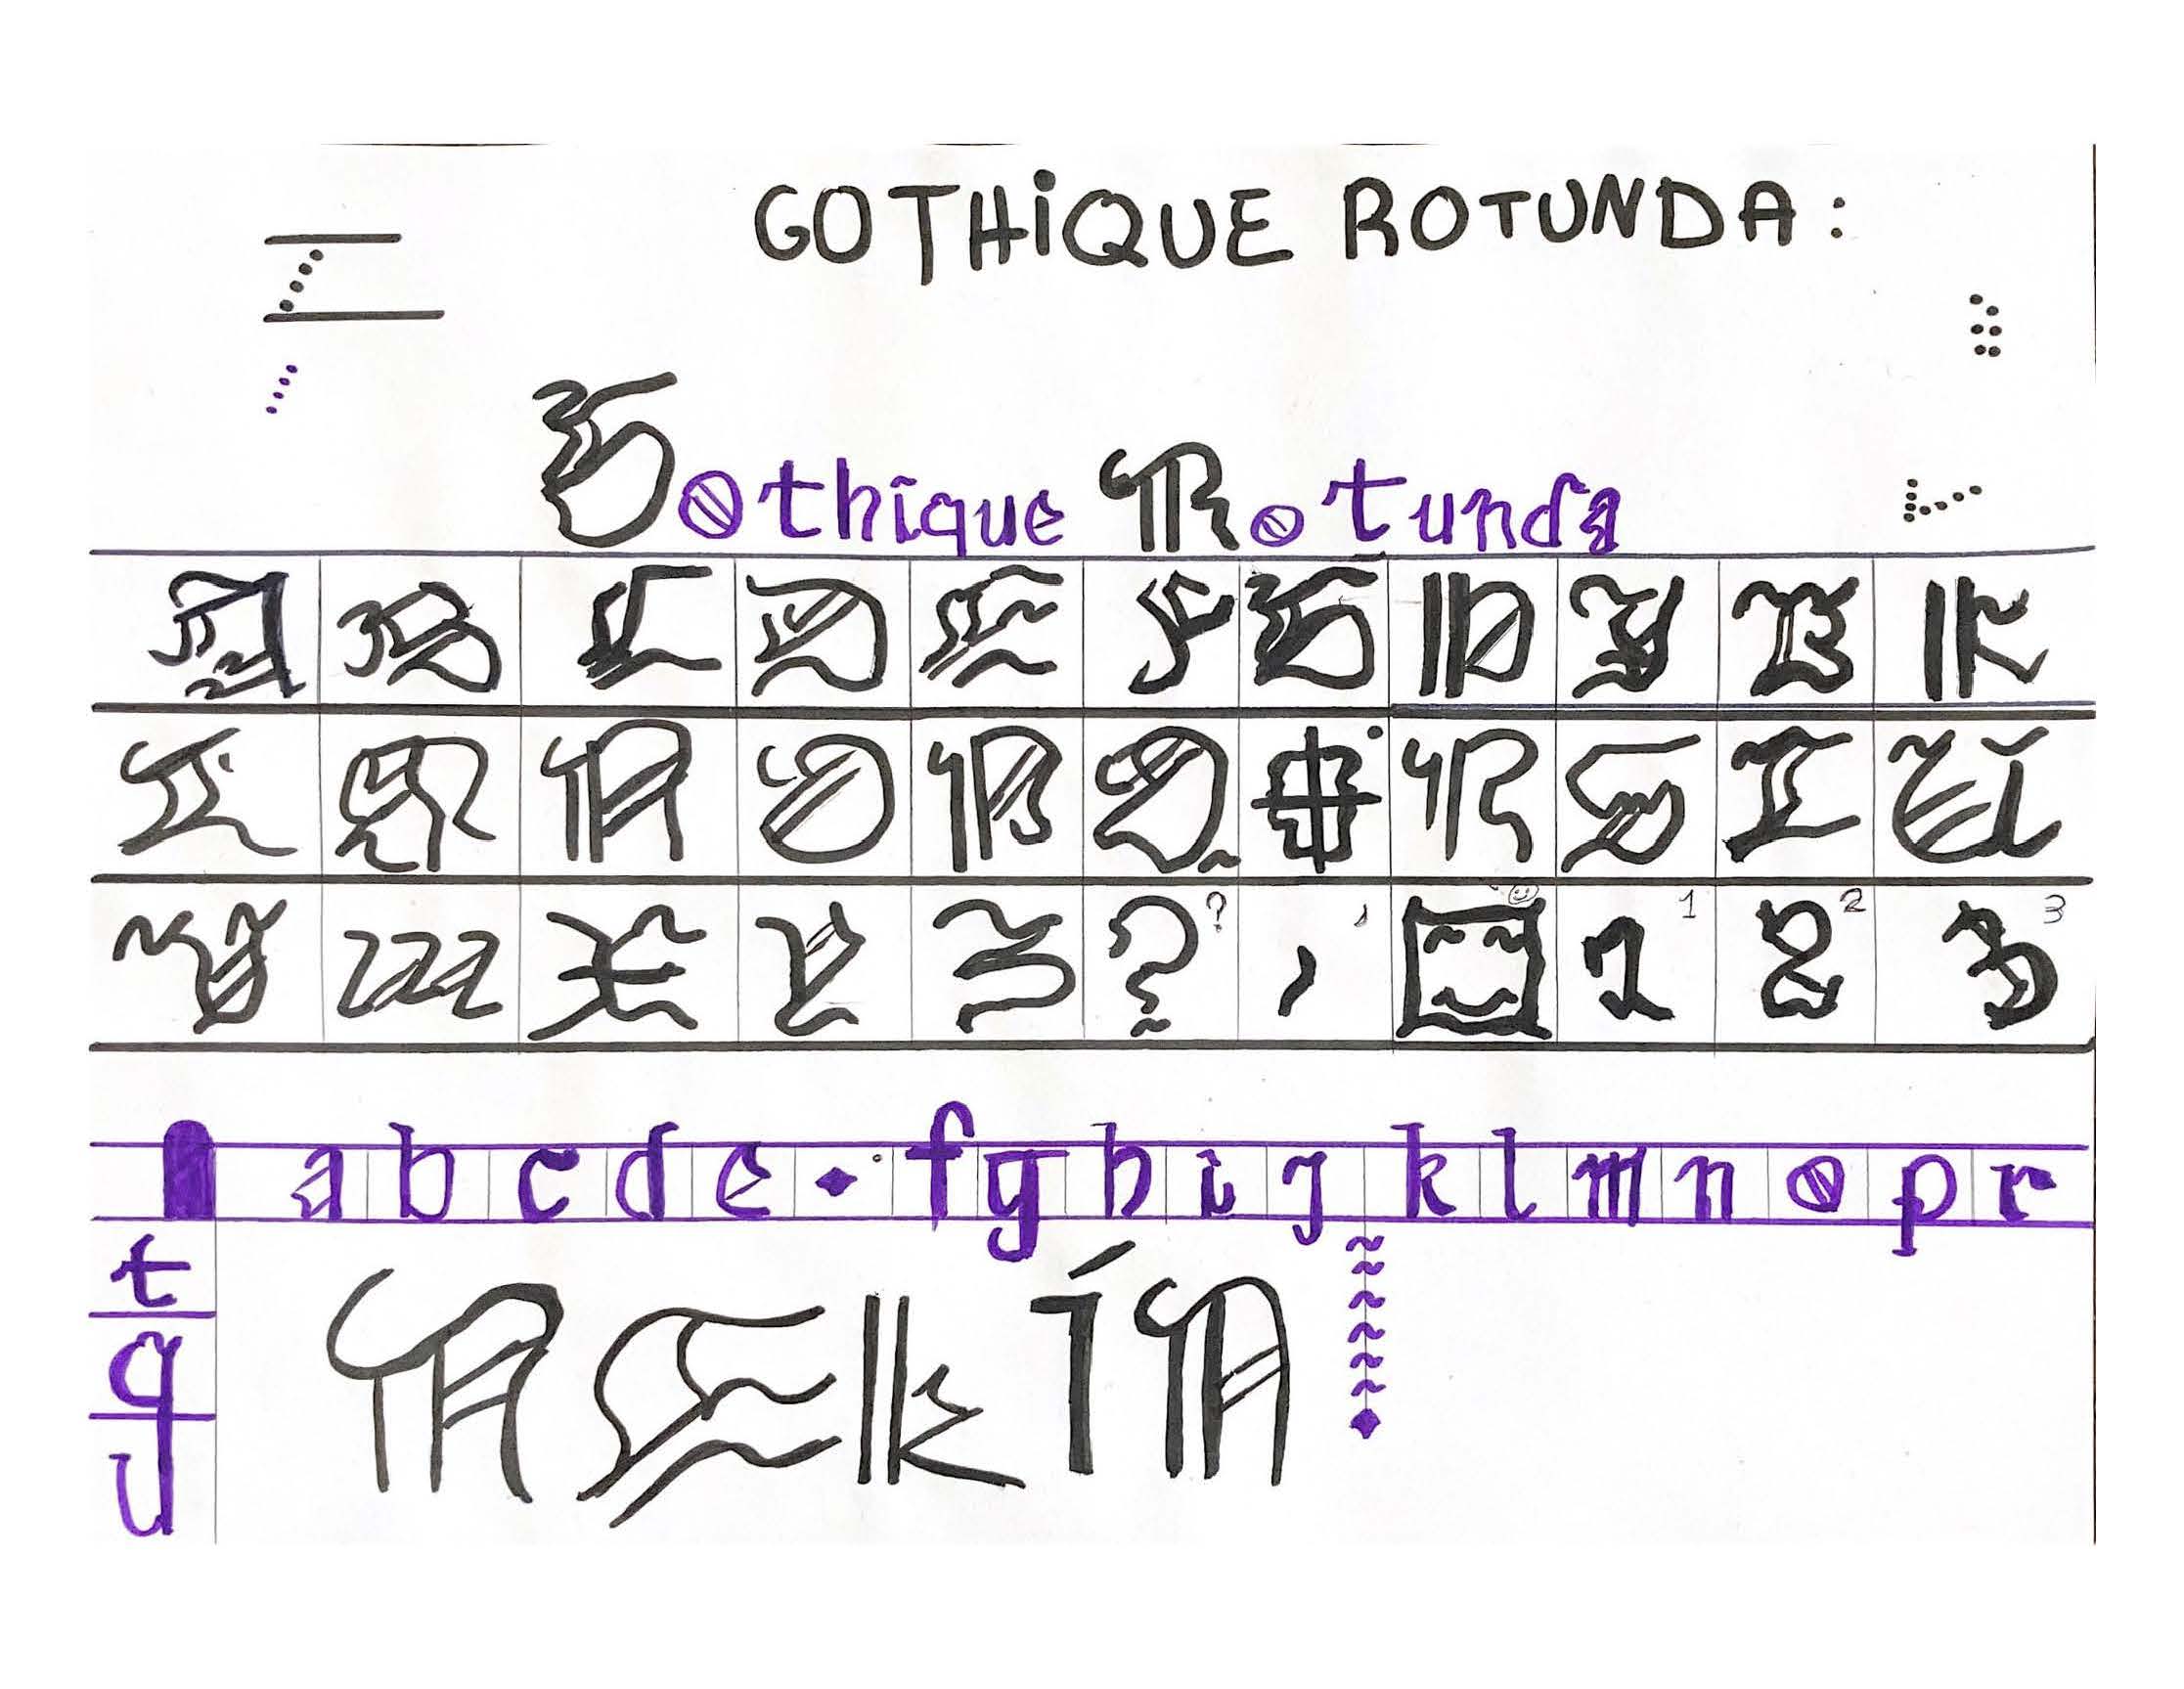 GOTHiQUE ROTUNDA:
Gothique Rotunda
A B C D E F G H I J K
L M N O P Q . R S T U
V W X Y Z ? ? , , 1 1 2 2 3 3
a b c d e . f g h i j k l m n o p r
t
q
NEKÍN